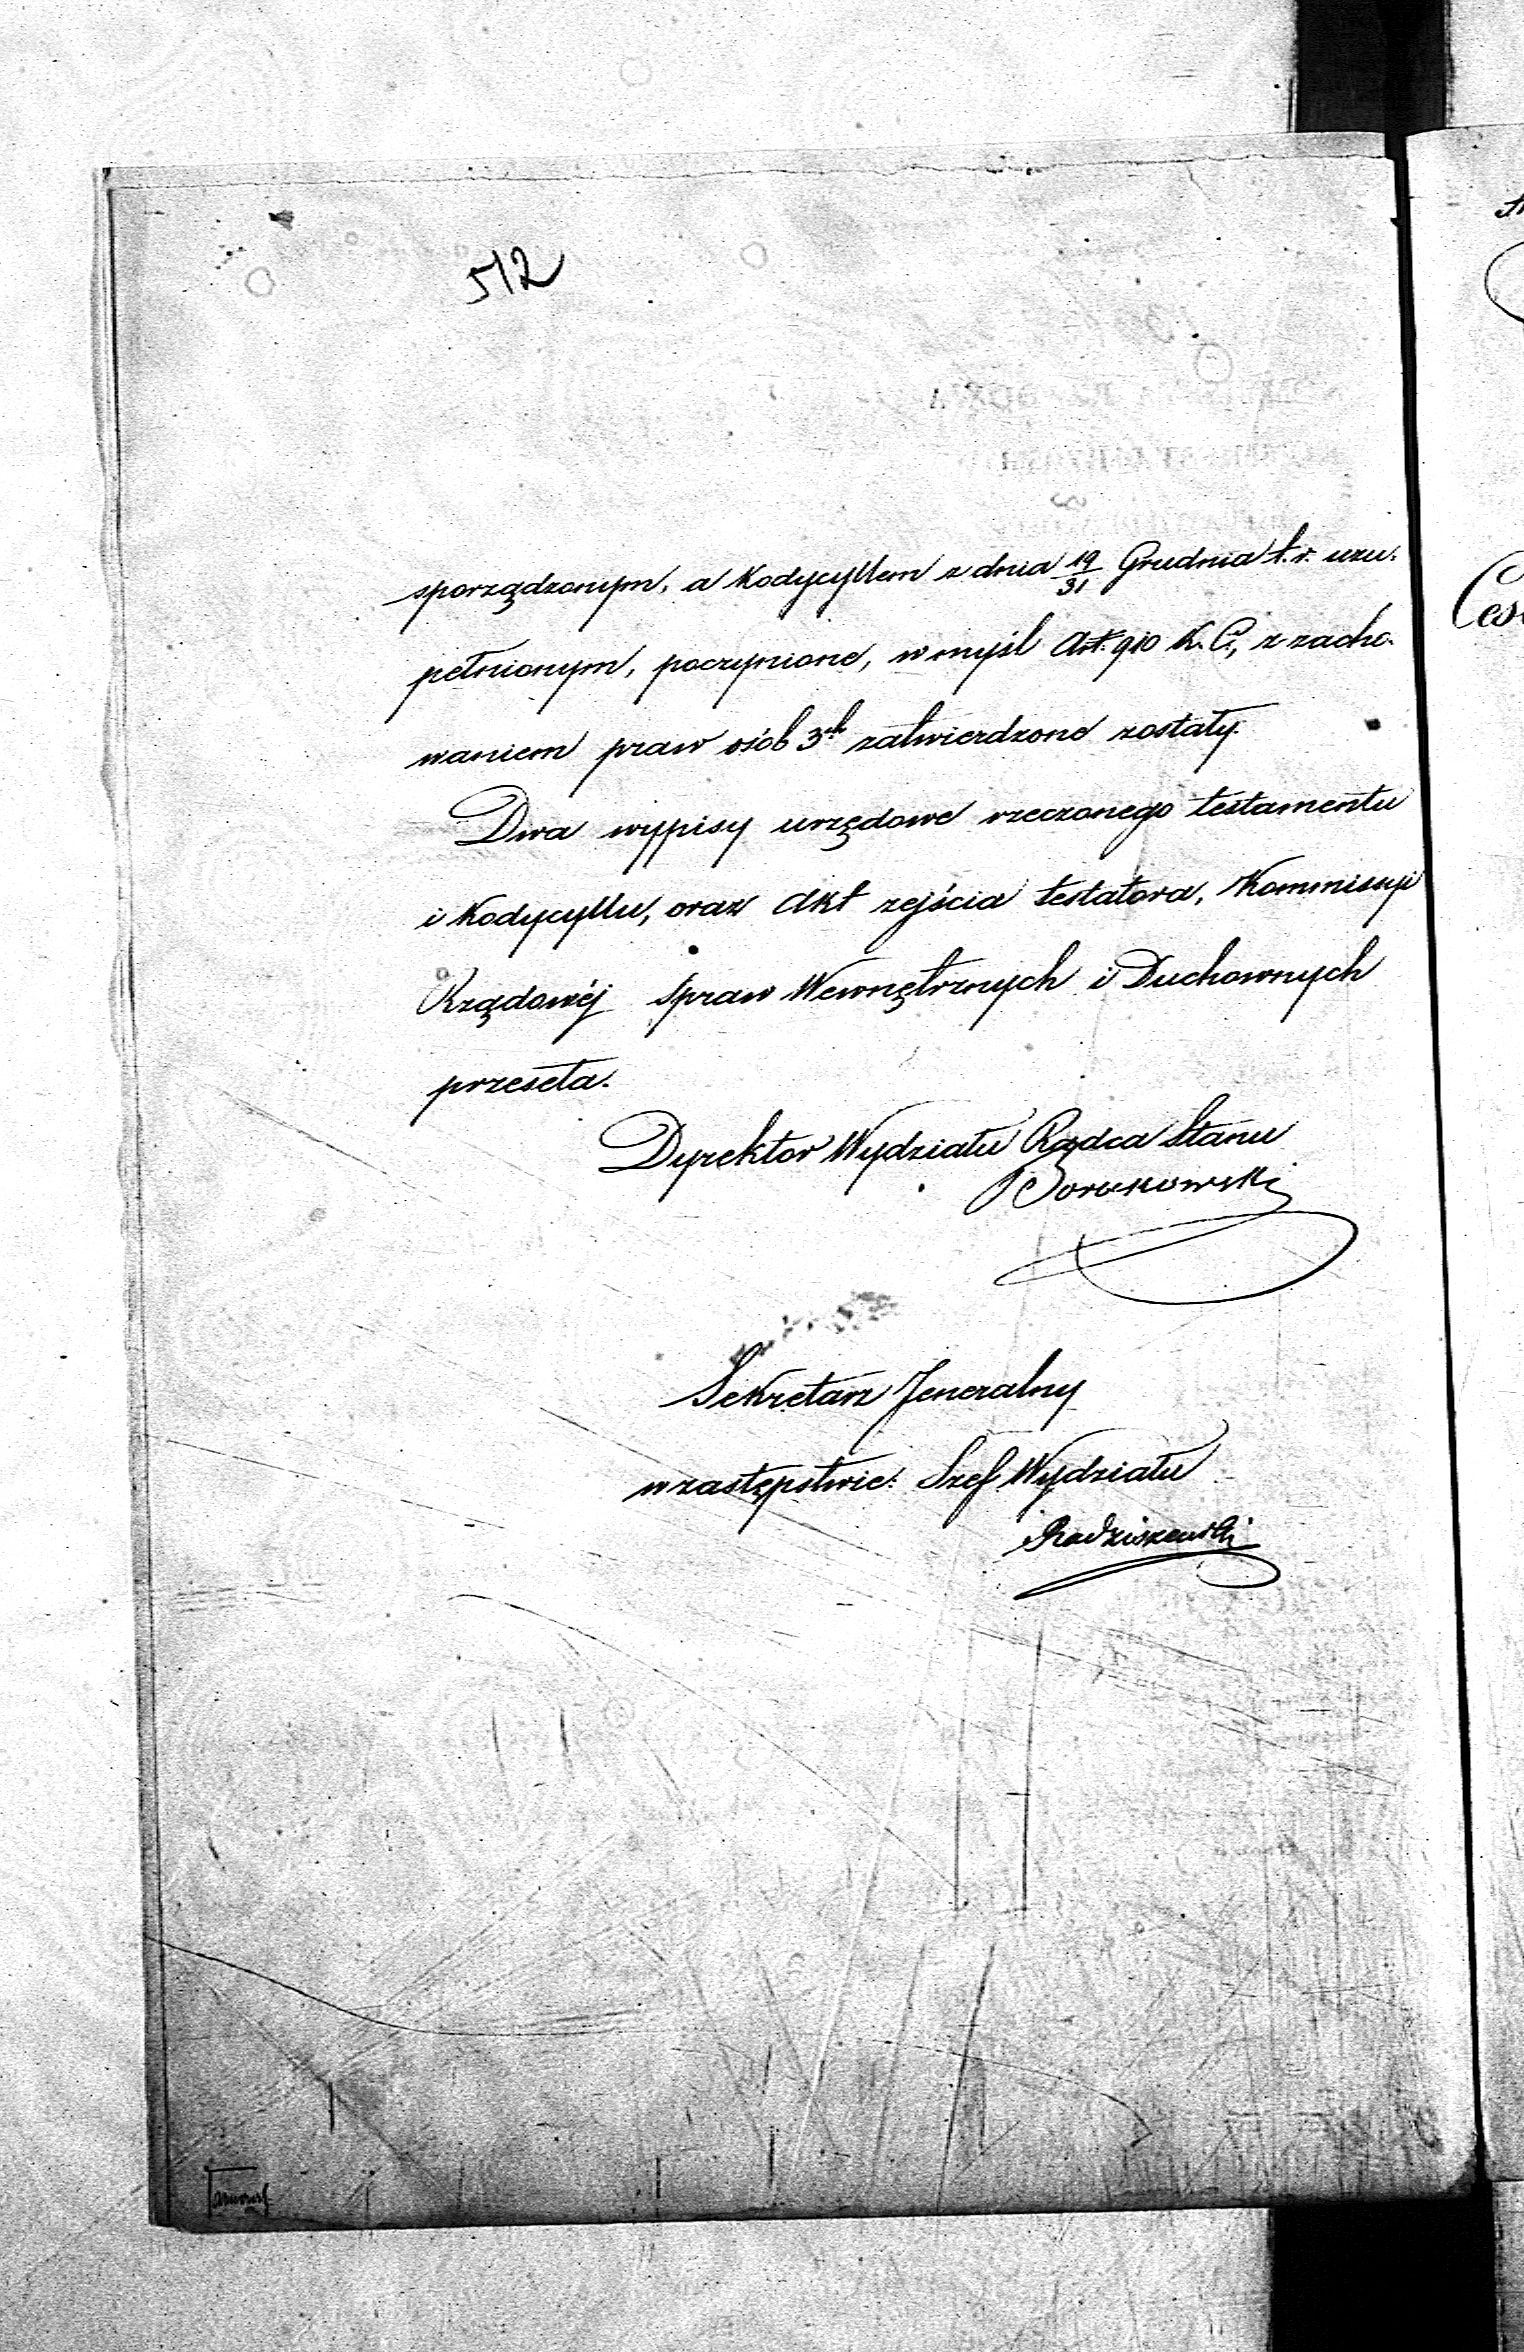 512
sporządzonym, a Kodycyllem z dnia 19/31 Grudnia t. r. uzu-
pełnionym, poczynione, w myśl Art: 910 K. C., z zacho-
waniem praw osób 3ch zatwierdzone zostały.
Dwa wypisy urzędowe rzeczonego testamentu
i Kodycyllu, oraz Akt zejścia testatora, Kommissyi
Rządowéj Spraw Wewnętrznych i Duchownych
przeseła.
Dyrektor Wydziału Radca Stanu
Sekretarz Jeneralny
w zastępstwie: Szef Wydziału
Radziszewski